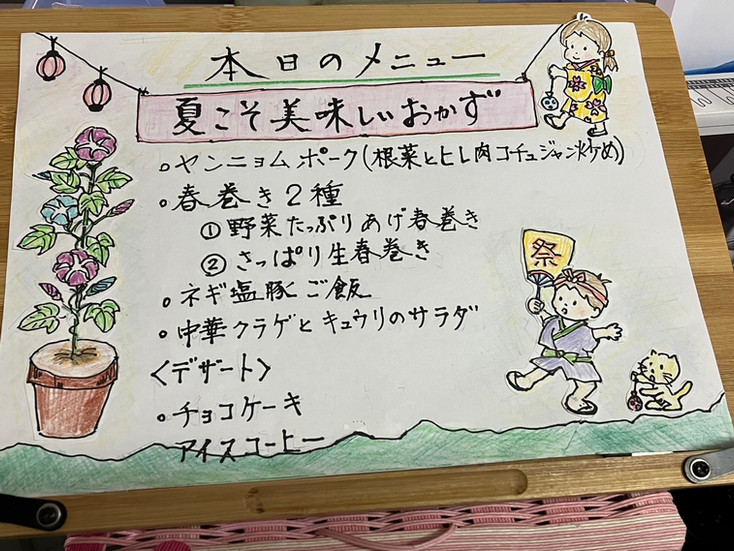 本日のメニュー
夏こそ美味しいおかず
。ヤンニョムポーク(根菜とヒレ肉コチュジャン炒め)
。春巻き2種
①野菜たっぷりあげ春巻き
②さっぱり生春巻き
。ネギ塩豚ご飯
。中華クラゲとキュウリのサラダ
〈デザート〉
。チョコケーキ
アイスコーヒー
祭